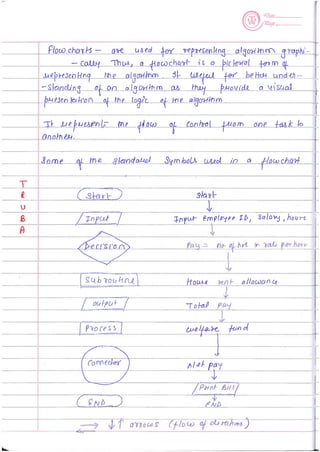 Flow charts — are used for representing algorithm graphi-
- cally Thus, a flowchart is a pictorial form of
representing the algorithm. It useful for better under-
- standing of an algorithm as they provide a visual
presentation of the logic of the algorithm.
It represent the flow of control from one task to
another.
Some of the standard Symbols used in a flow chart
T
R
U
B
A
Start
Start
Input
Input Employee ID, Salary, hours
Decision
Pay = no of hrs × rate per hour
Sub routine
House rent allowance
output
Total pay
Process
welfare fund
Connector
Net pay
Print Bill
END
END
→ ↓↑ arrows (flow of directions)